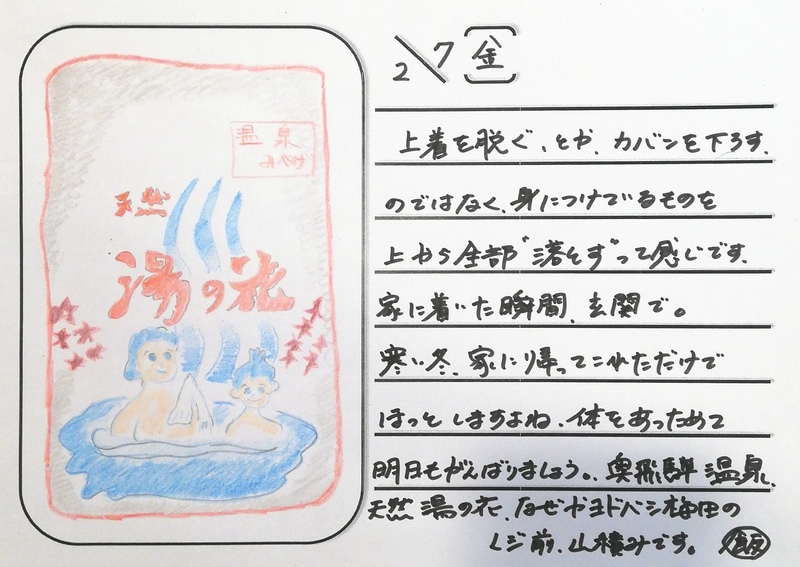 温泉
みやげ
天然
湯の花
2/7 [金]
上着を脱ぐ、とか、カバンを下ろす、
のではなく、身につけているものを
上から全部“落とす”って感じです。
家に着いた瞬間、玄関で。
寒い冬、家に帰ってこれただけで
ほっとしますよね、体をあっためて
明日もがんばりましょう。奥飛騨温泉、
天然湯の花、なぜかヨドバシ梅田の
レジ前、山積みです。 飯